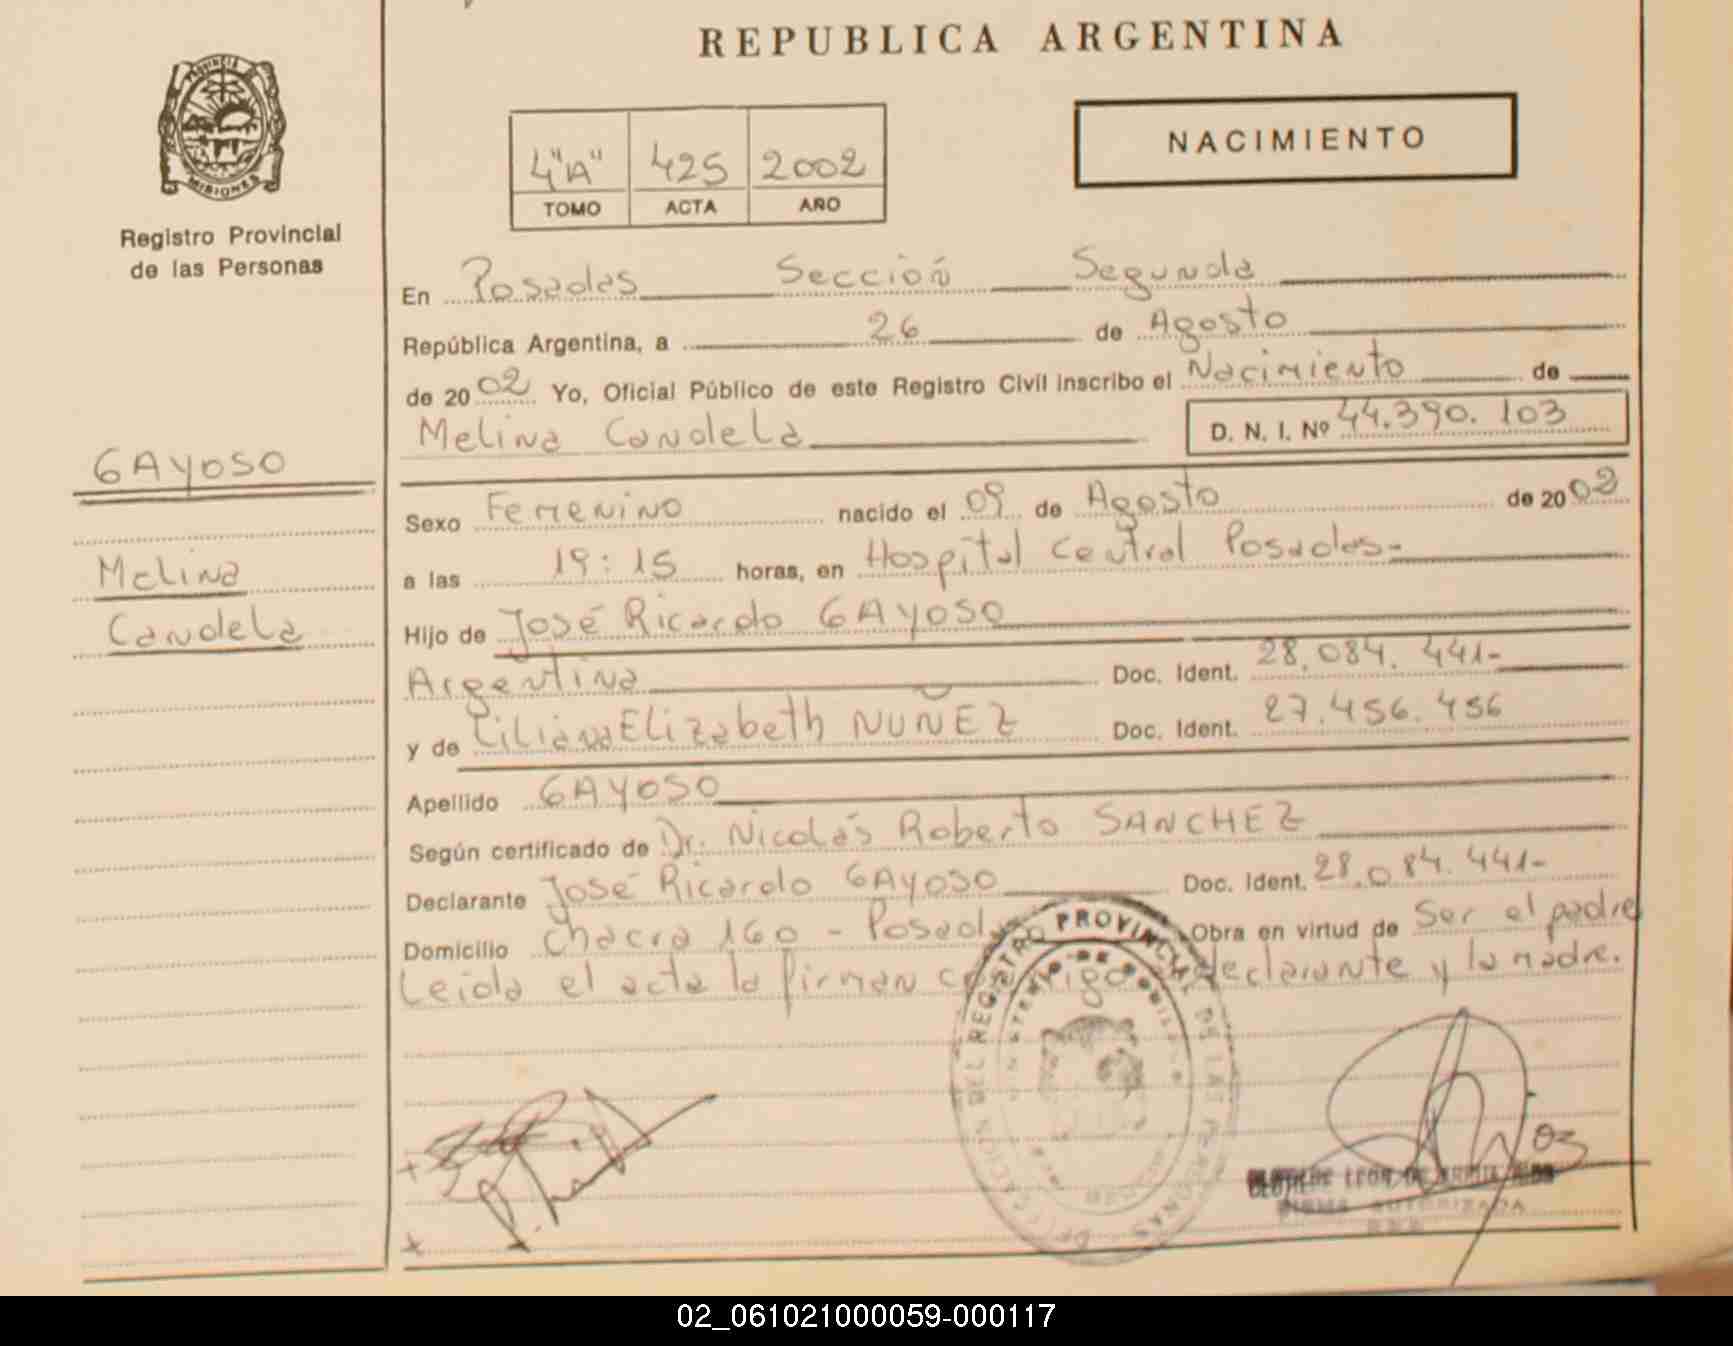 REPUBLICA ARGENTINA
PROVINCIA DE
MISIONES
Registro Provincial
de las Personas
NACIMIENTO
4"A" 425 2002
TOMO ACTA AÑO
En Posadas Sección Segunda
República Argentina, a 26 de Agosto
de 2002 Yo, Oficial Público de este Registro Civil inscribo el Nacimiento de
Melina Candela D. N. I. Nº 44.390.103
GAYOSO
Melina
Candela
Sexo Femenino nacido el 09 de Agosto de 2002
a las 19:15 horas, en Hospital Central Posadas-
Hijo de José Ricardo GAYOSO
Argentina Doc. Ident. 28.084.441-
y de Liliana Elizabeth NUÑEZ Doc. Ident. 27.456.456
Apellido GAYOSO
Según certificado de Dr. Nicolás Roberto SANCHEZ
Declarante José Ricardo GAYOSO Doc. Ident. 28.084.441-
Domicilio Chacra 160 - Posadas Obra en virtud de Ser el padre
Leida el acta la firman conmigo declarante y la madre.
DEL REGISTRO PROVINCIAL DE LAS PERSONAS
MINISTERIO DE GOBIERNO
LEON DE
FIRMA AUTORIZADA
02_061021000059-000117